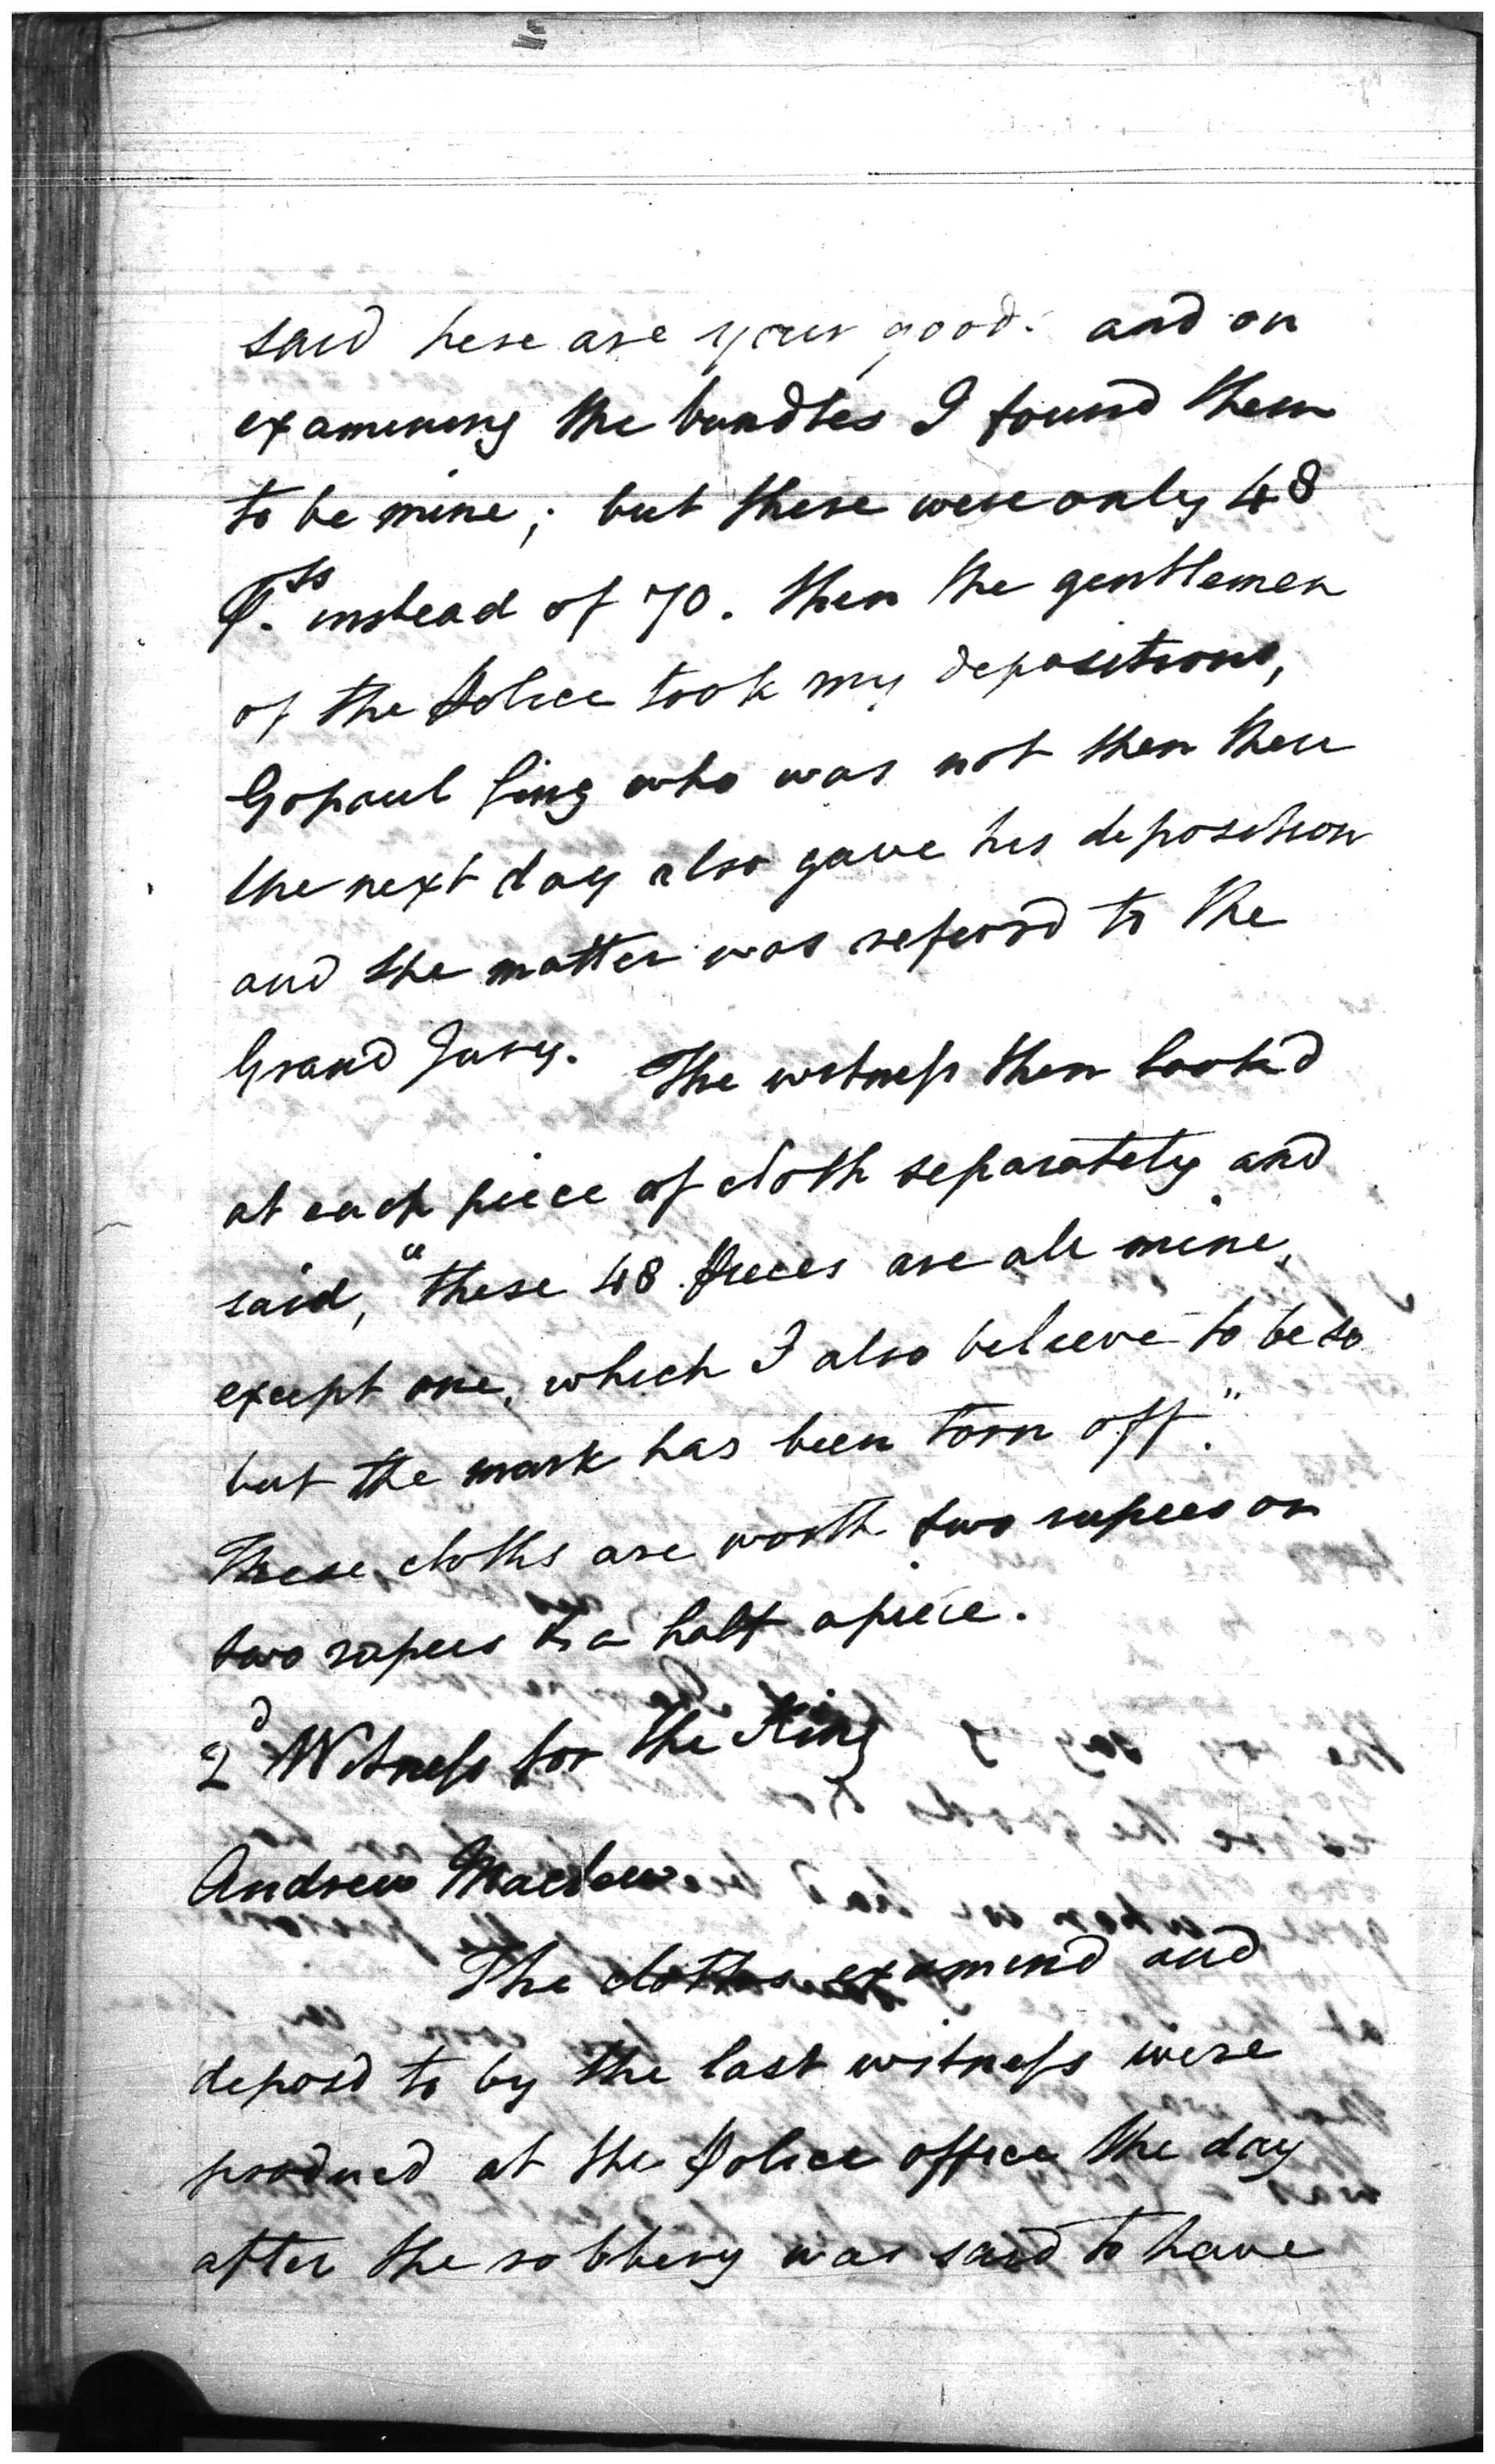 said here are your good. and on
examining the bundles I found them
to be mine; but there were only 48
Ps. instead of 70. then the gentlemen
of the Police took my depositions,
Gopaul Sing who was not then there
the next day also gave his deposition
and the matter was referrd to the
Grand Jury. The witness then lookd
at each piece of cloth separately and
said, "these 48 Pieces are all mine,
except one, which I also believe to be so
but the mark has been torn off."
These cloths are worth two rupees or
two rupees & a half apiece.
2d Witness for the King
Andrew
The cloths examind and
deposd to by the last witness were
producd at the Police office the day
after the robbery was said to have